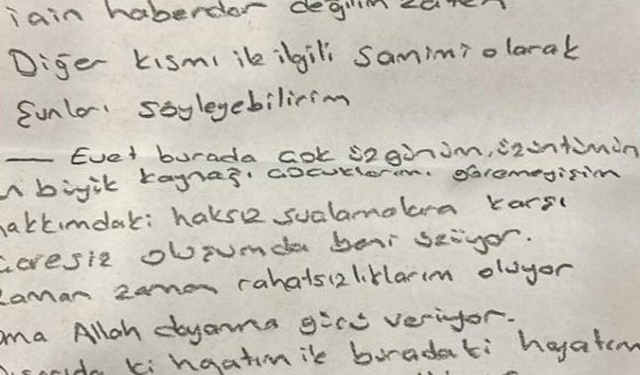 için haberdar değilim zaten
Diğer kısmı ile ilgili samimi olarak
şunları söyleyebilirim
— Evet burada çok üzgünüm, üzüntümün
n büyük kaynağı çocuklarımı göremeyişim
hakkımdaki haksız suçlamalara karşı
çaresiz oluşumda beni üzüyor.
zaman zaman rahatsızlıklarım oluyor
ama Allah dayanma gücü veriyor.
ki hayatım ile buradaki hayatım